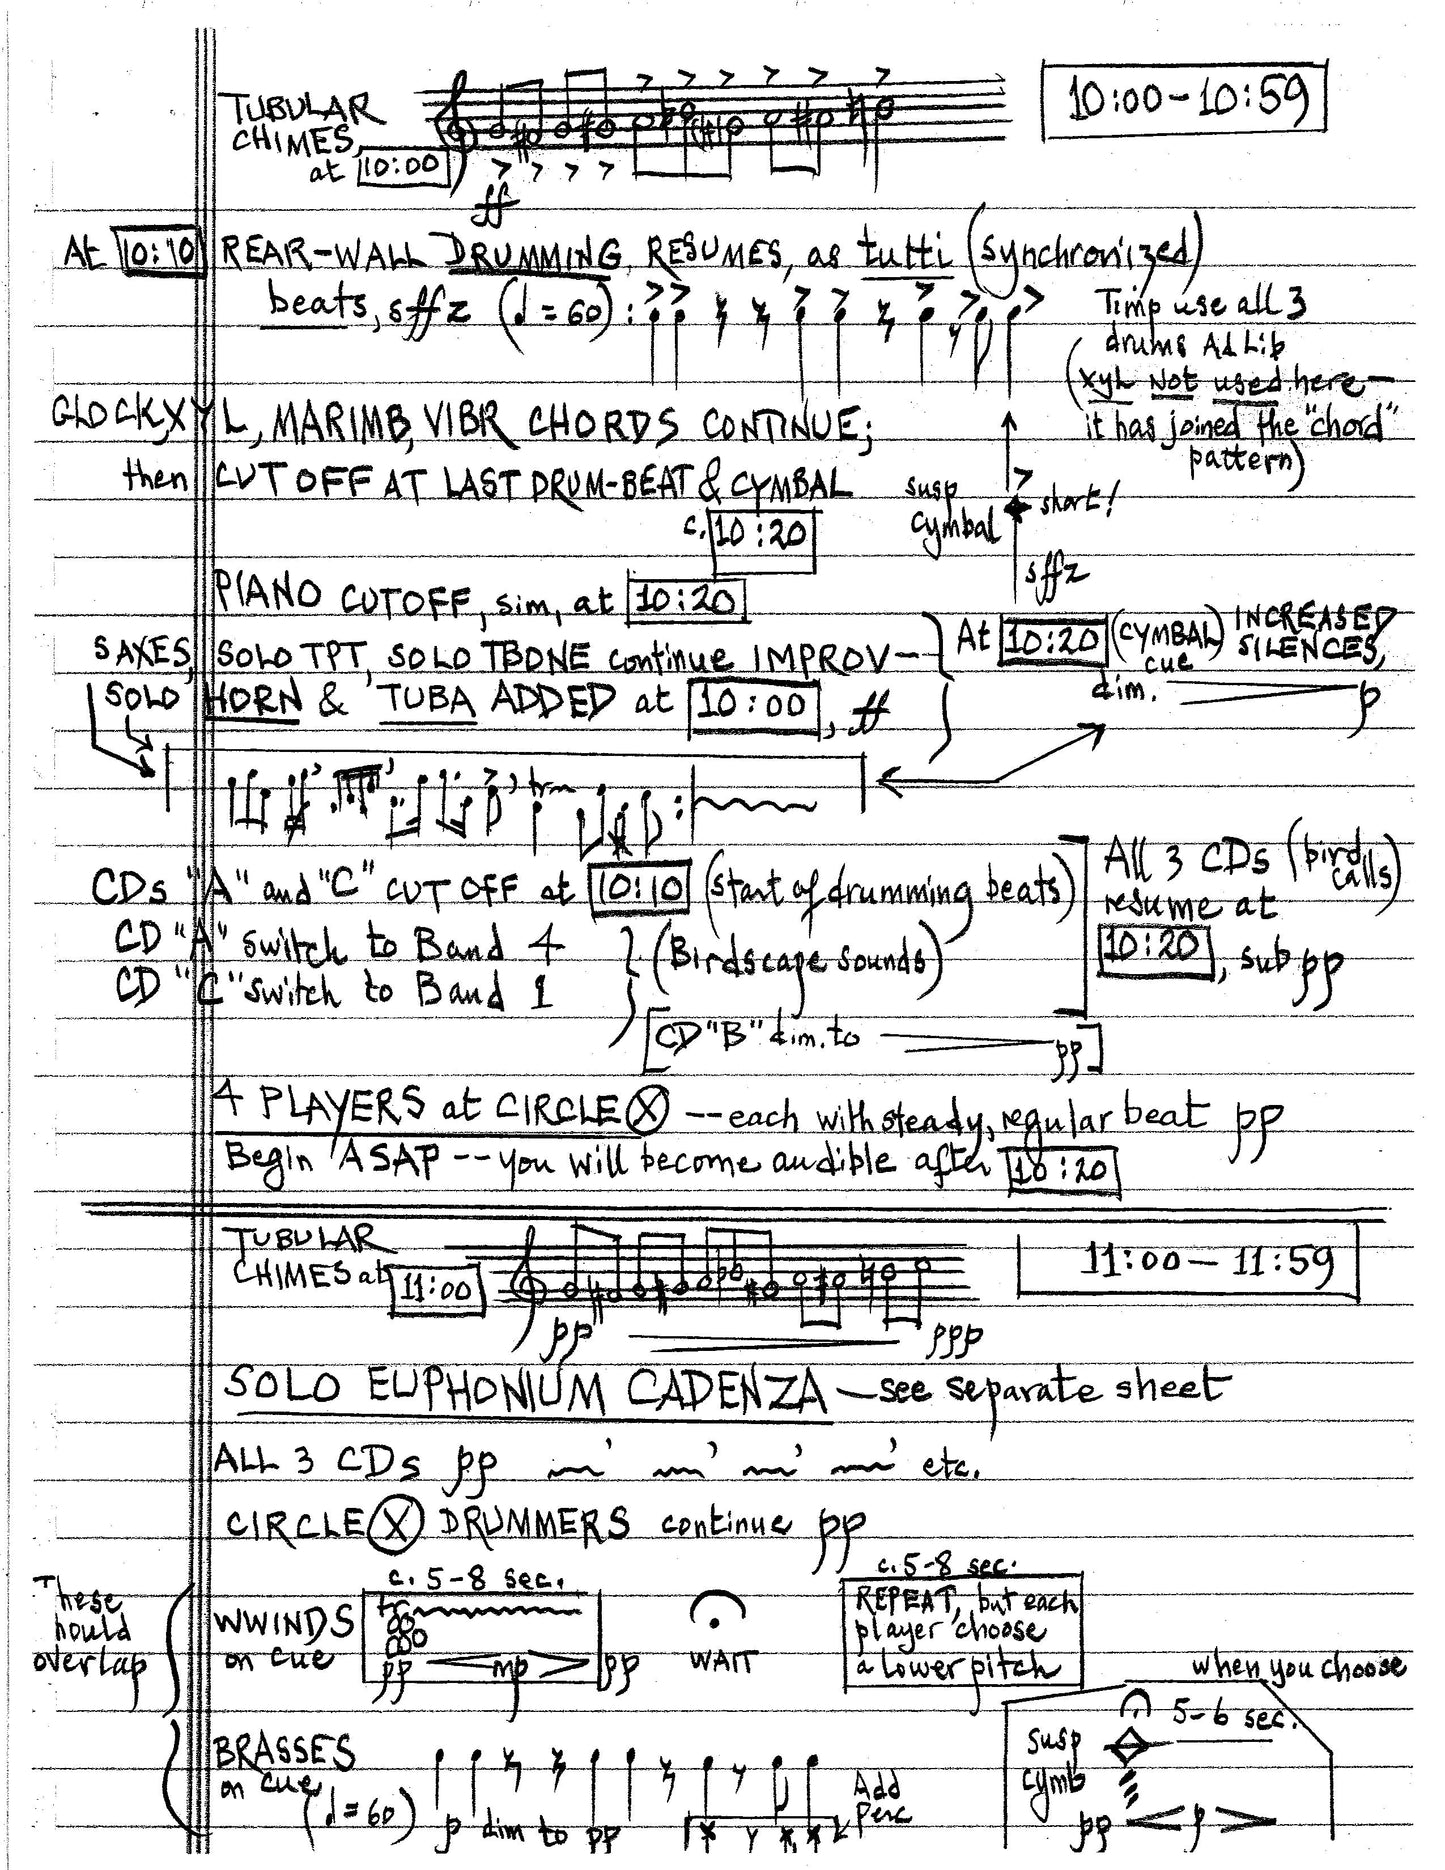 TUBULAR
CHIMES,
at 10:00
ff
10:00 – 10:59
At 10:10 REAR-WALL DRUMMING RESUMES, as tutti (synchronized)
beats, sffz (♩ = 60) :
Timp use all 3
drums Ad Lib
(XYL NOT used here —
it has joined the "chord"
pattern)
GLOCK, XYL, MARIMB, VIBR CHORDS CONTINUE;
then CUT OFF AT LAST DRUM-BEAT & CYMBAL
c. 10:20
susp
cymbal
short!
sffz
PIANO CUTOFF, sim, at 10:20
SAXES, SOLO TPT, SOLO TBONE continue IMPROV —
SOLO HORN & TUBA ADDED at 10:00, ff
At 10:20 (CYMBAL) cue INCREASED
SILENCES,
dim. p
tr
CDs "A" and "C" CUT OFF at 10:10 (start of drumming beats)
CD "A" switch to Band 4
CD "C" switch to Band 1
(Birdscape sounds)
[CD "B" dim. to pp]
All 3 CDs (bird calls)
resume at
10:20, sub pp
4 PLAYERS at CIRCLE Ⓧ -- each with steady, regular beat pp
Begin ASAP -- you will become audible after 10:20
TUBULAR
CHIMES at 11:00
pp ppp
11:00 – 11:59
SOLO EUPHONIUM CADENZA — see separate sheet
ALL 3 CDs pp etc.
CIRCLE Ⓧ DRUMMERS continue pp
These
hould
overlap
WWINDS
on cue
c. 5-8 sec.
tr
pp mp pp
WAIT
c. 5-8 sec.
REPEAT, but each
player choose
a lower pitch
BRASSES
on cue
(♩ = 60)
p dim to pp
Add
Perc
when you choose
5-6 sec.
susp
cymb
pp p